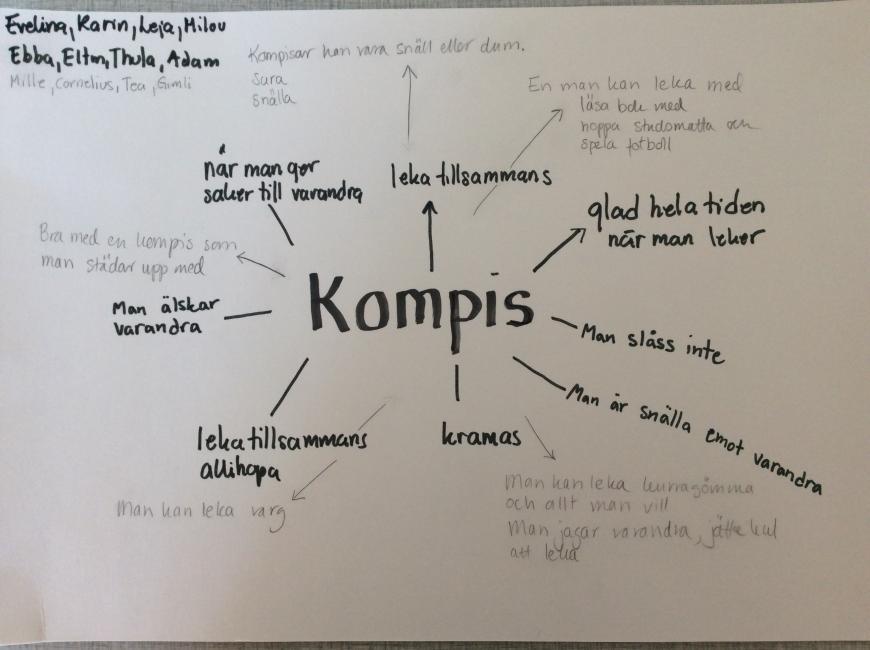 Evelina, Karin, Leja, Milou
Ebba, Elton, Thula, Adam
Mille, Cornelius, Tea, Gimli
Kompisar kan vara snäll eller dum.
sura
snälla
En man kan leka med
läsa bok med
hoppa studsmatta och
spela fotboll
när man gör
saker till varandra
leka tillsammans
glad hela tiden
när man leker
Bra med en kompis som
man städar upp med
Kompis
Man älskar
varandra
Man slåss inte
Man är snälla emot varandra
leka tillsammans
allihopa
kramas
Man kan leka varg
Man kan leka kurragömma
och allt man vill
Man jagar varandra, jätte kul
att leka